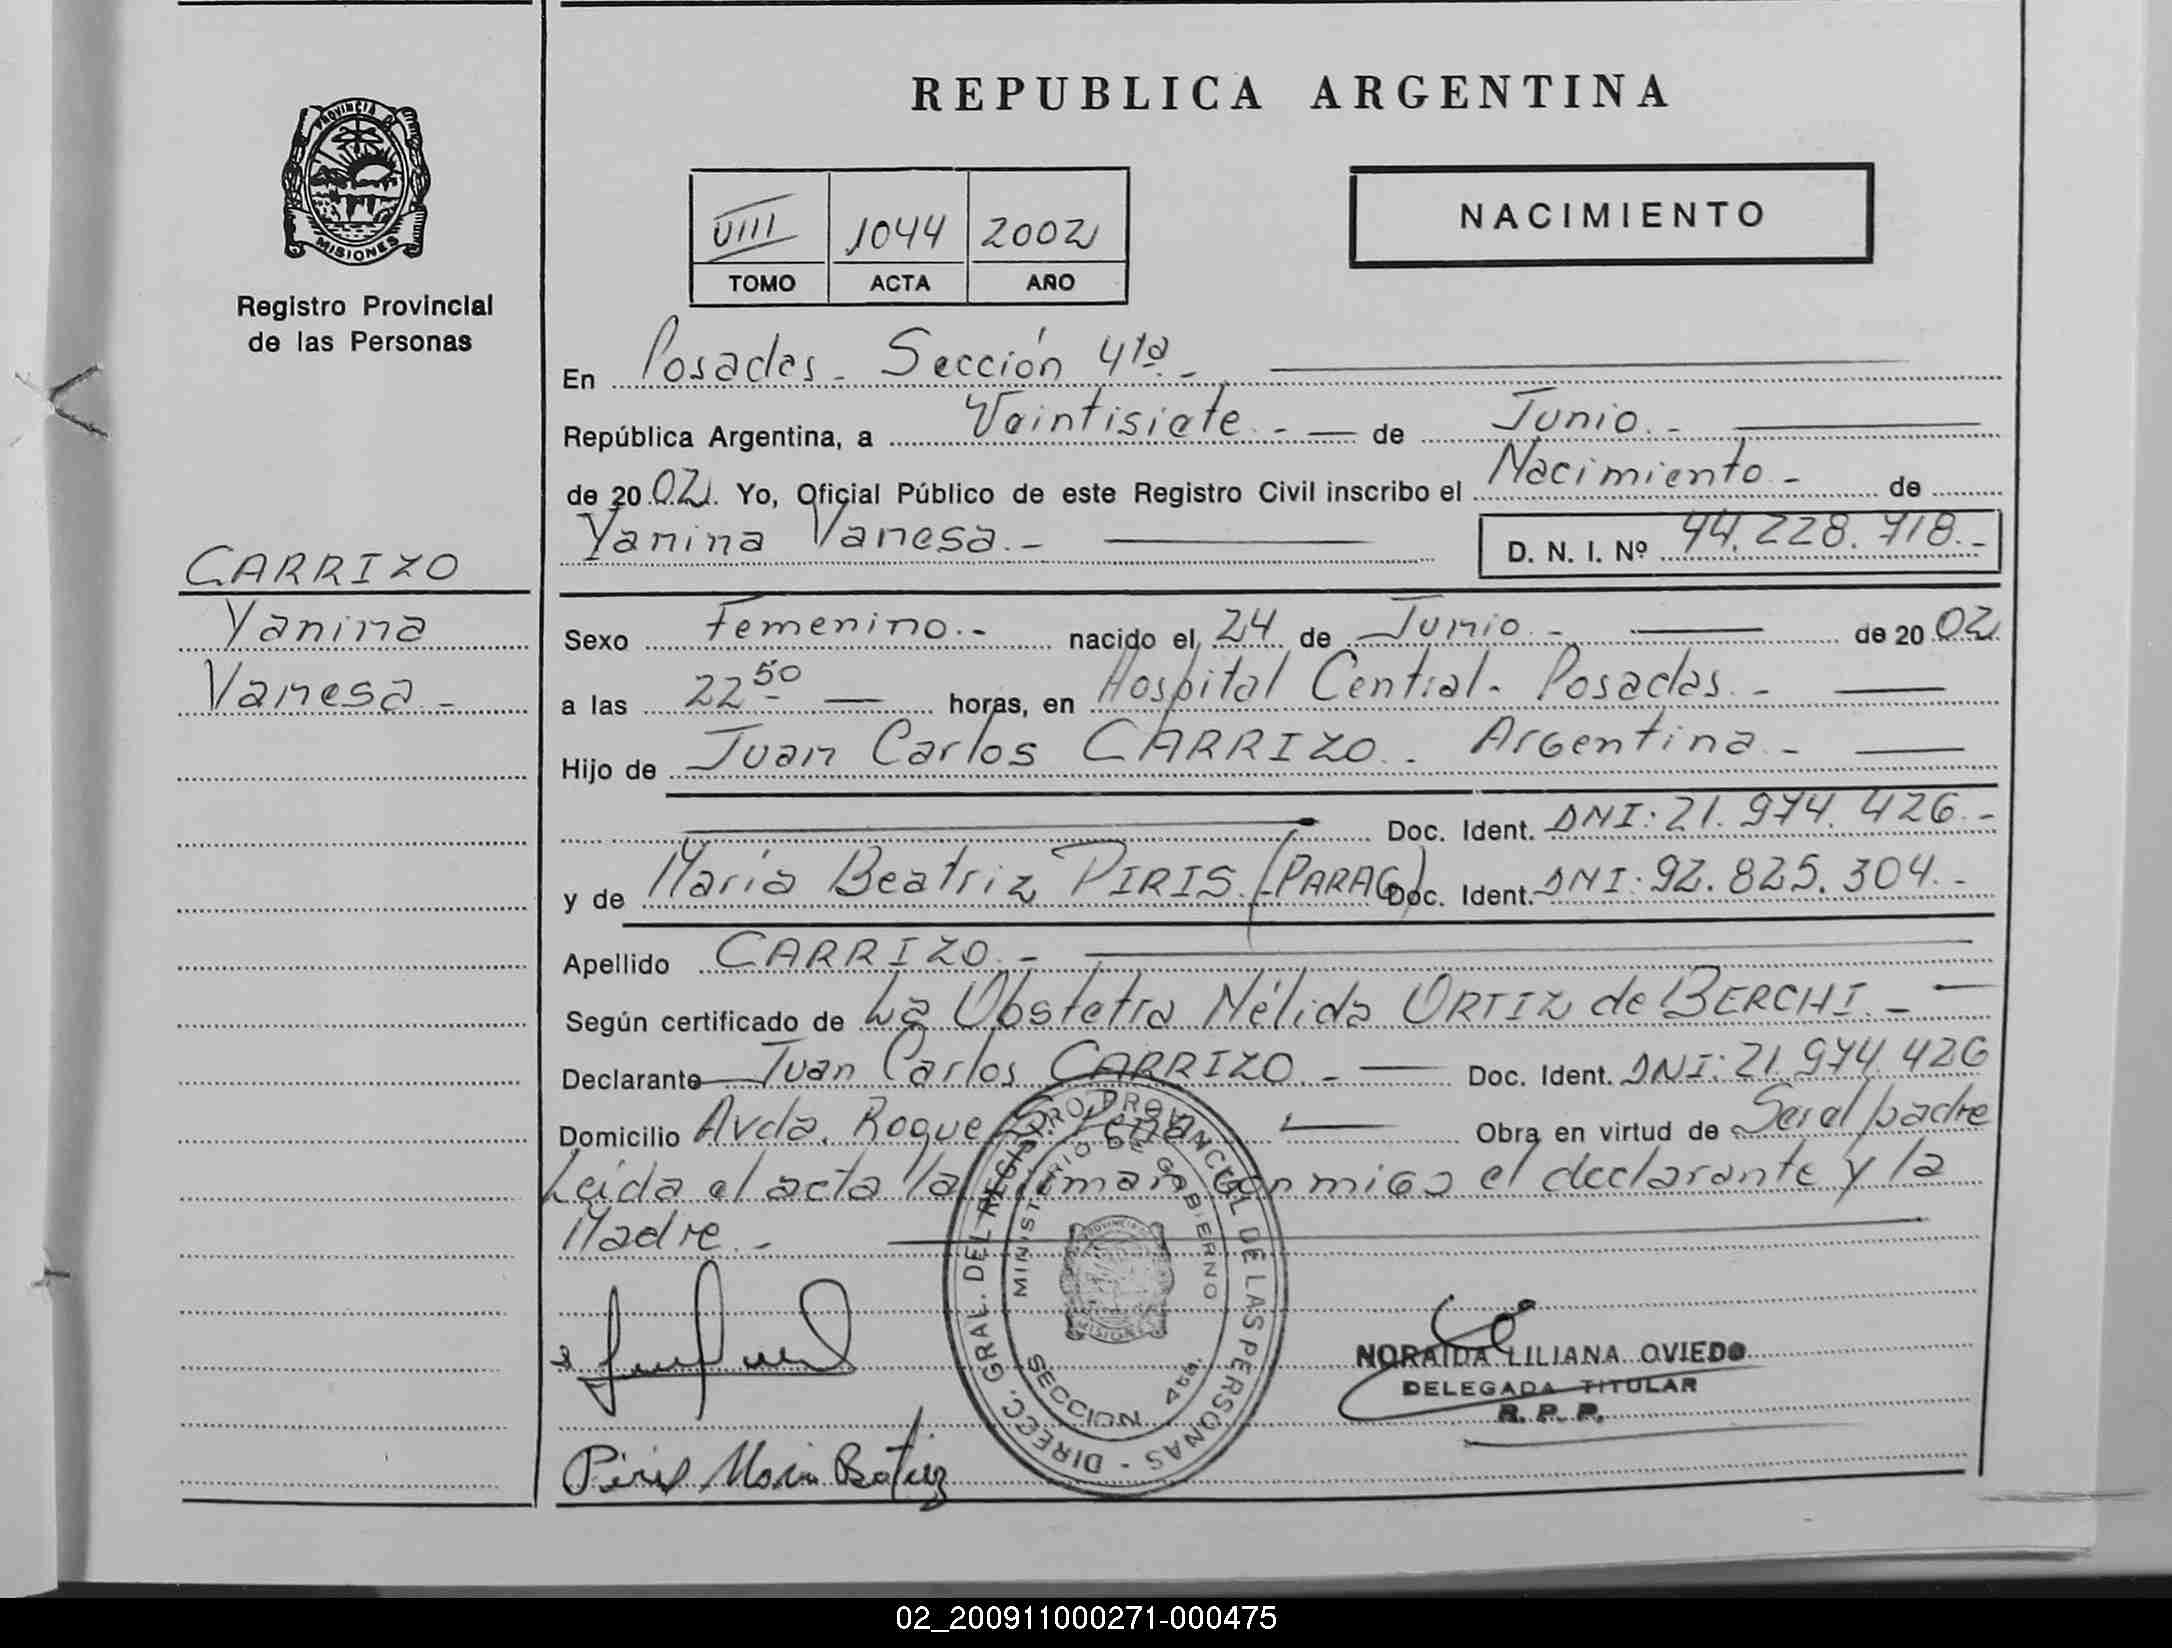 REPUBLICA ARGENTINA
PROVINCIA D
MISIONES
Registro Provincial
de las Personas
VIII 1044 2002
TOMO ACTA AÑO
NACIMIENTO
En Posadas - Sección 4ta. -
República Argentina, a Veintisiete. - de Junio. -
de 2002. Yo, Oficial Público de este Registro Civil inscribo el Nacimiento - de
Yanina Vanesa. - D. N. I. Nº 44.228.718. -
CARRIZO
Yanina
Vanesa. -
Sexo Femenino. - nacido el 24 de Junio. - de 2002
a las 22 50 horas, en Hospital Central - Posadas. -
Hijo de Juan Carlos CARRIZO. - Argentina. -
Doc. Ident. DNI: 21.974.426. -
y de María Beatriz PIRIS. (PARAG) Doc. Ident. DNI: 92.825.304. -
Apellido CARRIZO. -
Según certificado de La Obstetra Nélida ORTIZ de BERCHI. -
Declarante Juan Carlos CARRIZO. - Doc. Ident. DNI: 21.974.426
Domicilio Avda. Roque S. Peña Obra en virtud de Ser el padre
Leída el acta la firman conmigo el declarante y la
Madre. -
DIREC. GRAL. DEL REGISTRO PROVINCIAL DE LAS PERSONAS -
MINISTERIO DE GOBIERNO
PROVINCIA
MISIONES
SECCION 4ta.
NORAIDA LILIANA OVIEDO
DELEGADA TITULAR
R. P. P.
Piris Maria Batriz
02_200911000271-000475